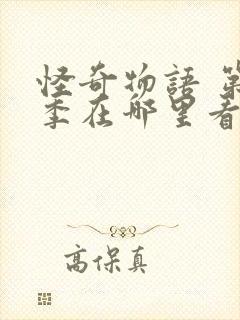 怪奇物語 第
季在哪里看
高保真